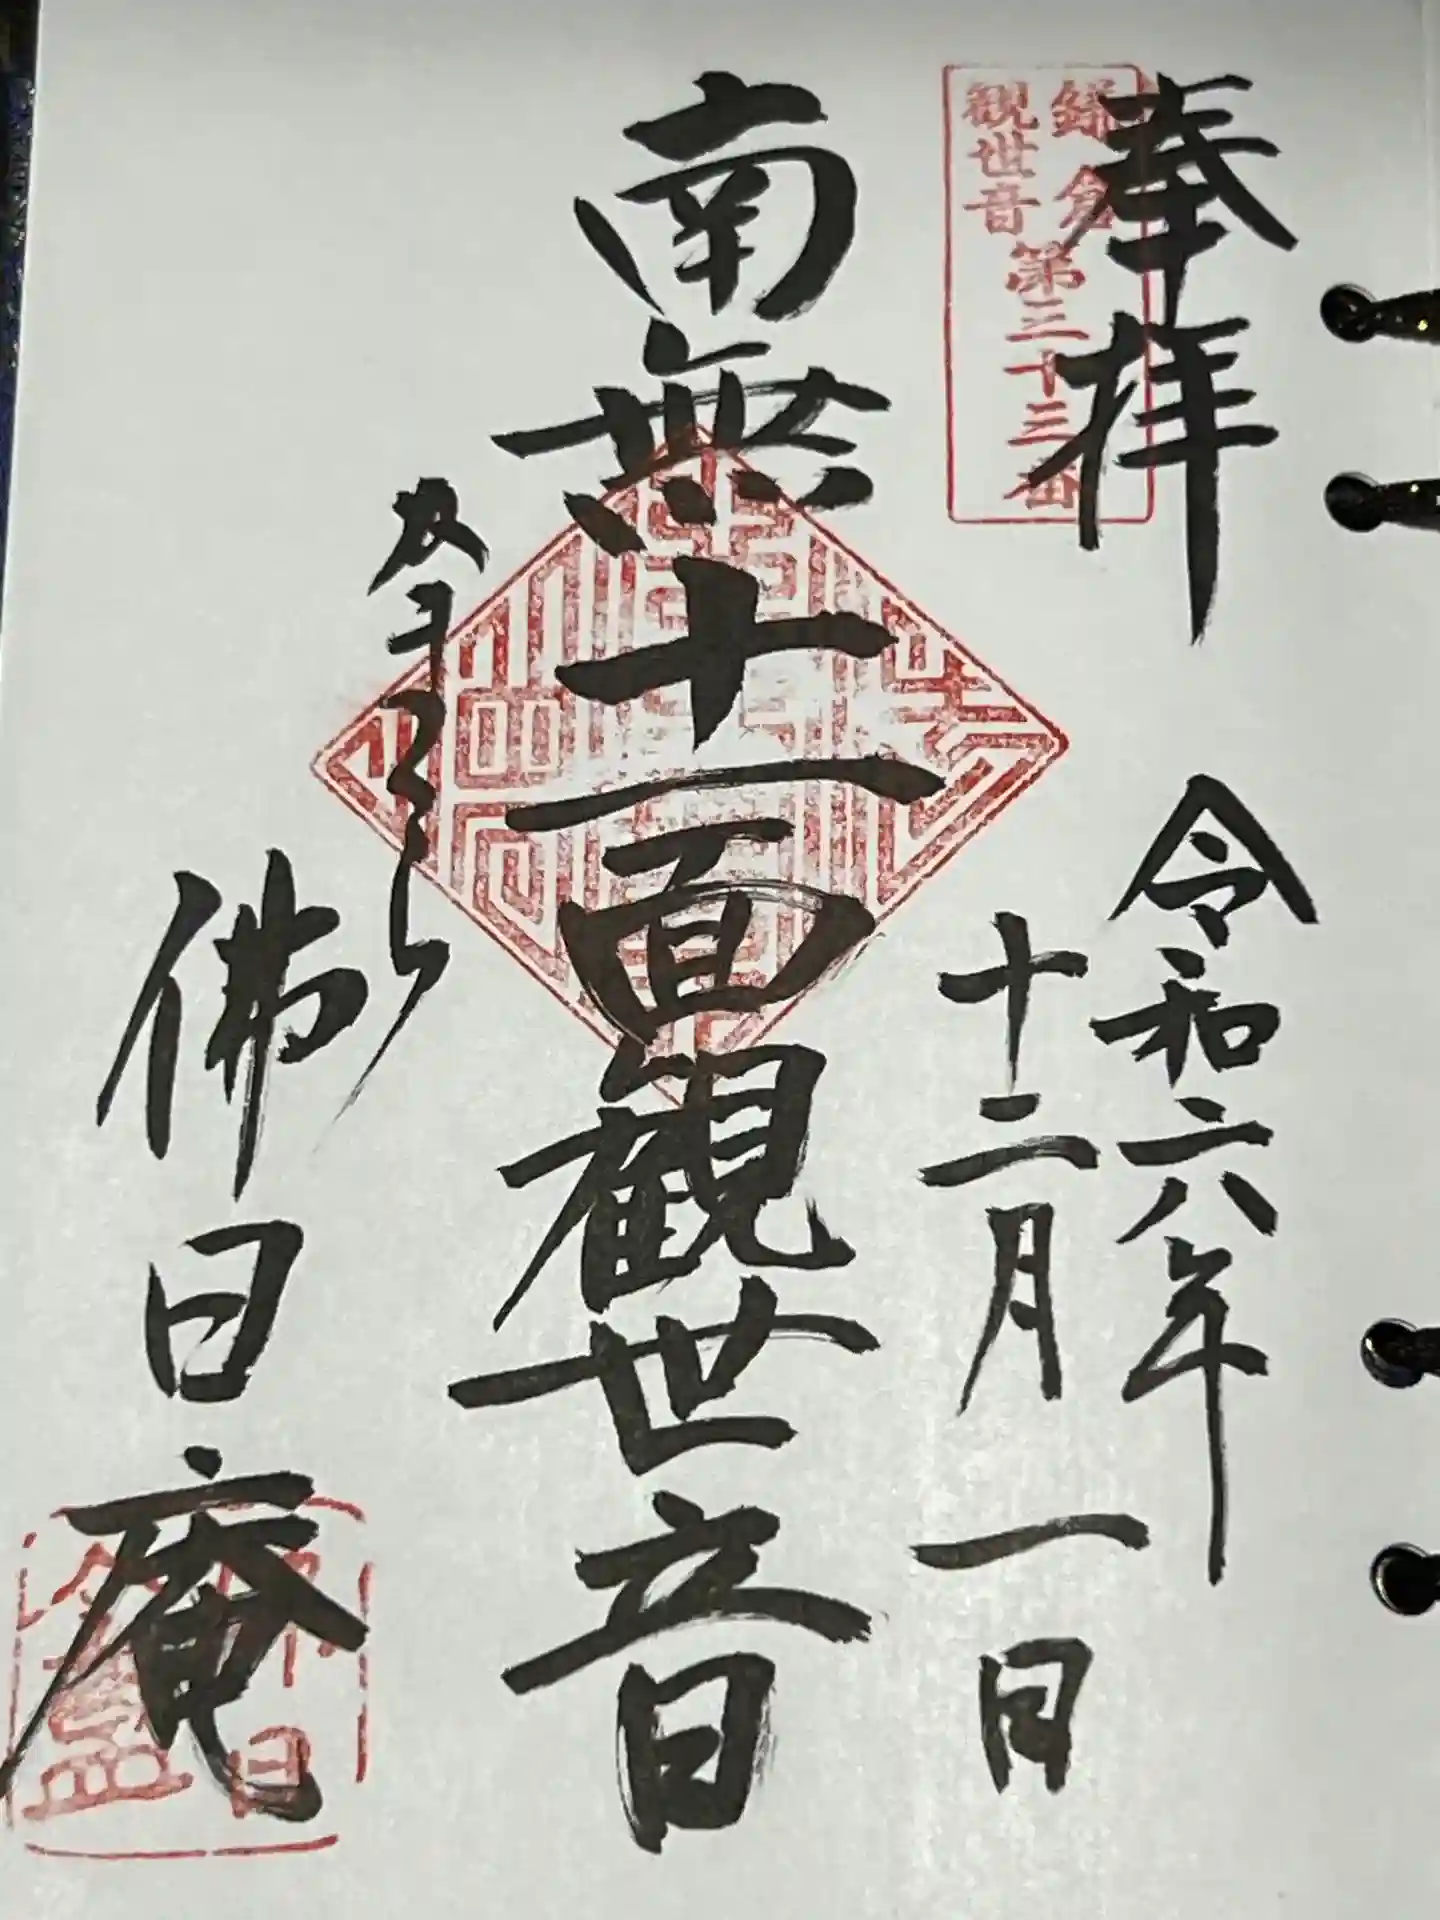 奉拝
鎌倉
観世音
第三十三番
令和六年
十二月一日
南無十一面観世音
佛日庵